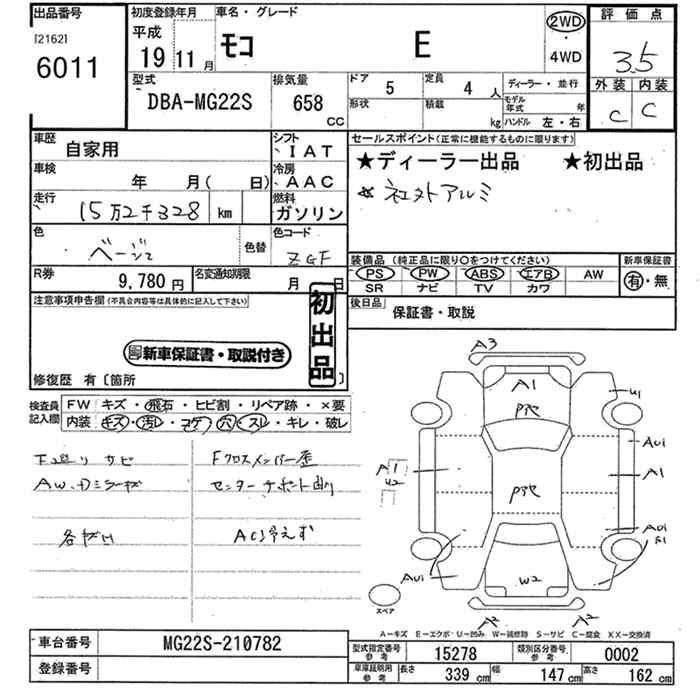 出品番号
[2162]
6011
初度登録年月
平成
19 11月
車名・グレード
モコ E
2WD
・
4WD
評価点
3.5
外装 内装
C C
型式
DBA-MG22S
排気量
658
CC
ドア 5
定員 4 人
ディーラー・並行
形状
積載 kg
モデル年式 年
ハンドル 左・右
車歴
自家用
シフト
IAT
車検
年 月( 日)
冷房
AAC
走行
15万2千328 km
燃料
ガソリン
色
ベージュ
色替
色コード
ZGF
R券
9,780 円
名変通知期限
月 日
セールスポイント(正常に機能するものに限ります)
★ディーラー出品 ★初出品
☆社外アルミ
装備品(純正品に限り○をつけてください)
新車保証書
PS PW ABS エアB AW
SR ナビ TV カワ
有・無
後日品
保証書・取説
注意事項申告欄(不具合内容等は具体的に記入して下さい)
初出品
新車保証書・取説付き
修復歴 有〔箇所 〕
検査員
記入欄
FW キズ・飛石・ヒビ割・リペア跡・×要
内装 キズ・汚レ・コゲ・穴・スレ・キレ・破レ
下廻りサビ
Fクロスメンバー歪
AW、Dミラーキズ
センターサポート曲り
各キズ凹
AC冷えず
A3
A1
U1
AU1
A1
U2
A1
AU1
W2
A2
A2
スペア
A−キズ E−エクボ・U−凹み W−補修跡 S−サビ C−腐食 XX−交換済
車台番号
MG22S-210782
登録番号
型式指定番号
参考
15278
類別区分番号
参考
0002
車庫証明用
参考
長さ 339 cm
幅 147 cm
高さ 162 cm